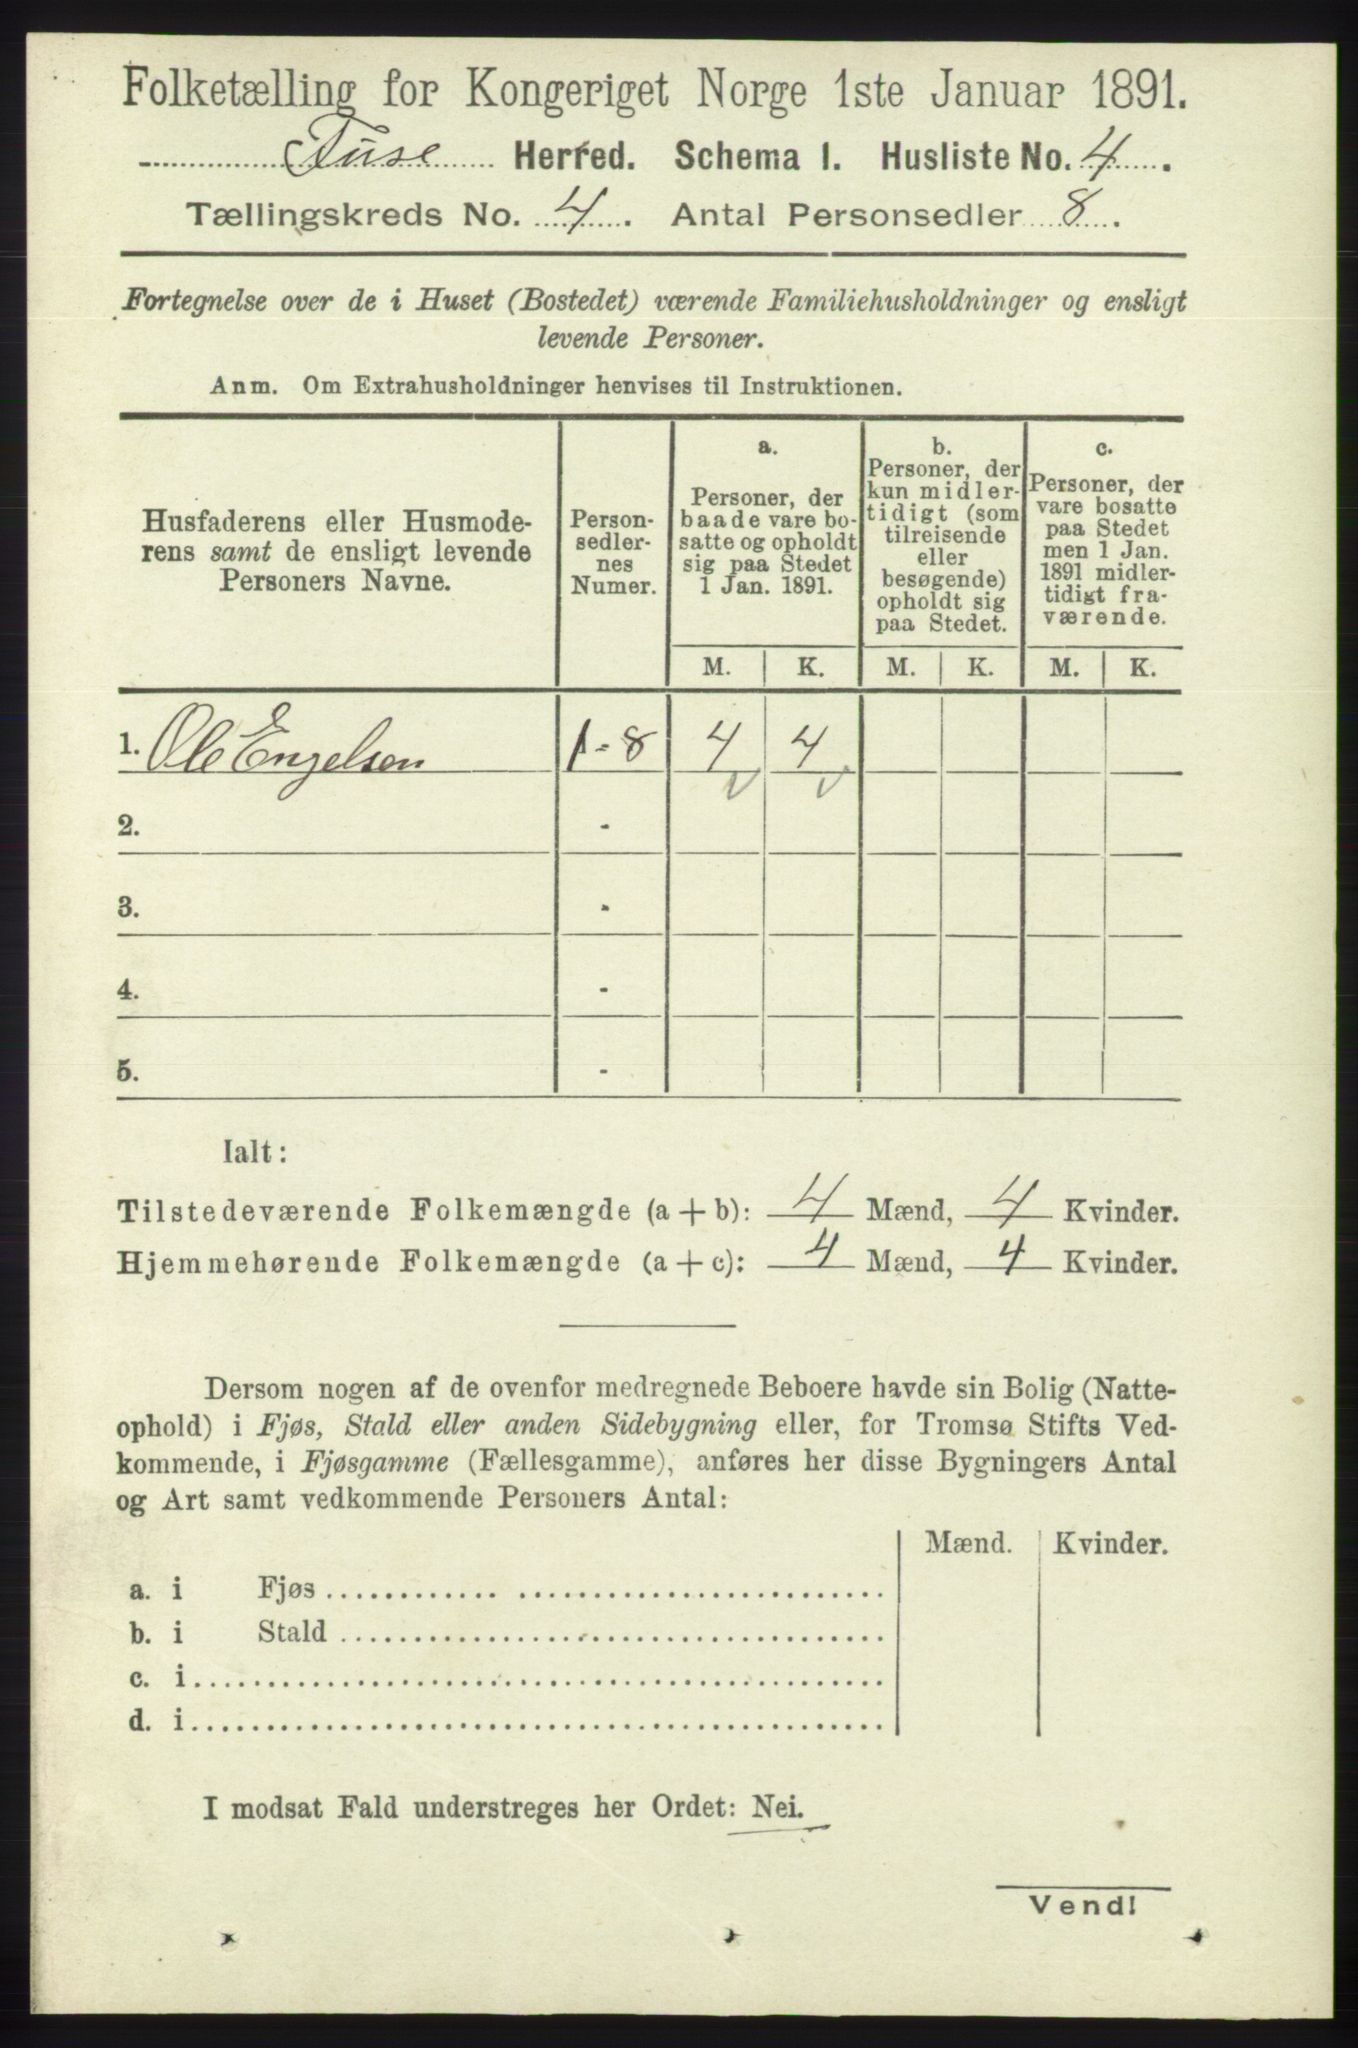 Folketælling for Kongeriget Norge 1ste Januar 1891.
Fuse Herred. Schema 1. Husliste No. 4.
Tællingskreds No. 4. Antal Personsedler 8.
Fortegnelse over de i Huset (Bostedet) værende Familiehusholdninger og ensligt
levende Personer.
Anm. Om Extrahusholdninger henvises til Instruktionen.
Husfaderens eller Husmode-
rens samt de ensligt levende
Personers Navne.
Person-
sedler-
nes
Numer.
a.
Personer, der
baade vare bo-
satte og opholdt
sig paa Stedet
1 Jan. 1891.
b.
Personer, der
kun midler-
tidigt (som
tilreisende
eller
besøgende)
opholdt sig
paa Stedet.
c.
Personer, der
vare bosatte
paa Stedet
men 1 Jan.
1891 midler-
tidigt fra-
værende.
M. K. M. K. M. K.
1. Ole Engelsen 1-8 4 4
2. -
3. -
4. -
5. -
Ialt:
Tilstedeværende Folkemængde (a + b): 4 Mænd, 4 Kvinder.
Hjemmehørende Folkemængde (a + c): 4 Mænd, 4 Kvinder.
Dersom nogen af de ovenfor medregnede Beboere havde sin Bolig (Natte-
ophold) i Fjøs, Stald eller anden Sidebygning eller, for Tromsø Stifts Ved-
kommende, i Fjøsgamme (Fællesgamme), anføres her disse Bygningers Antal
og Art samt vedkommende Personers Antal:
Mænd. Kvinder.
a. i Fjøs
b. i Stald
c. i
d. i
I modsat Fald understreges her Ordet: Nei.
Vend!